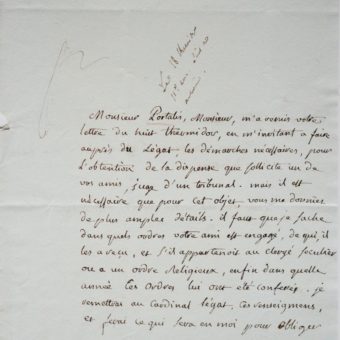 Les 18 thermidor
Monsieur Portalis, Monsieur, m'a remis votre
lettre du huit thermidor, en m'invitant a faire
auprès du Légat, les démarches nécessaires, pour
l'obtention de la dispense que sollicite un de
vos amis, juge d'un tribunal. mais il est
nécessaire que pour cet objet, vous me donniez
de plus amples détails. il faut que je sache
dans quels ordres votre ami est engagé, de qui, il
les a reçu, et s'il appartenoit au clergé seculier
ou a un ordre Religieux, enfin dans quelle
année ces Ordres lui ont été conferés. je
remettrai au Cardinal Légat, ces renseignemens,
et ferai ce qui sera en moi pour obliger